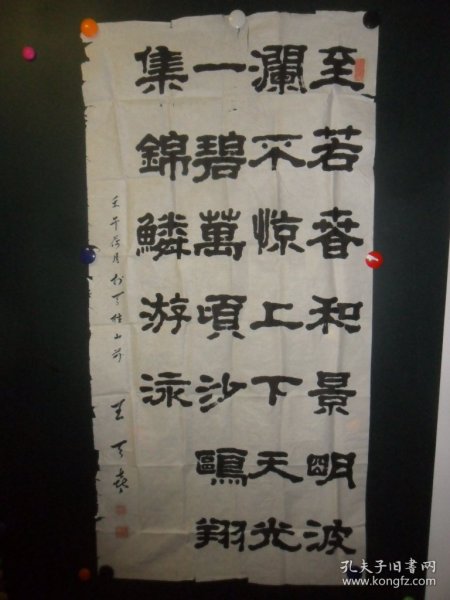 至若春和景明波
瀾不惊上下天光
一碧萬頃沙鷗翔
集錦鱗游泳
壬午荷月於天柱山前 王天
孔夫子旧书网
www.kongfz.com